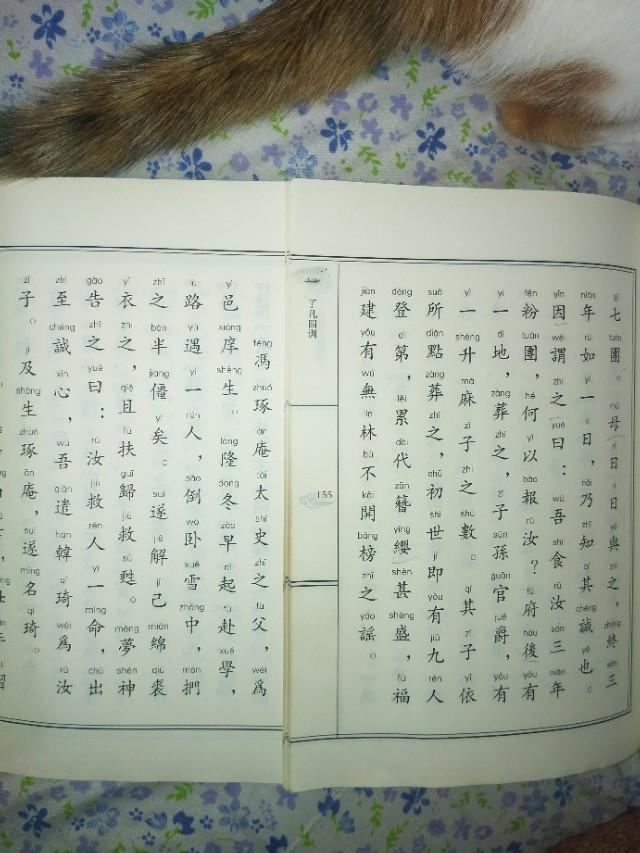 七團。母日日與之,終三
年如一日,乃知其誠也。
因謂之曰:吾食汝三年
粉團,何以報汝?府後有
一地,葬之,子孫官爵,有
一升麻子之數。其子依
所點葬之,初世即有九人
登第,累代簪纓甚盛,福
建有無林不開榜之謠。
了凡四訓
155
馮琢庵太史之父,爲
邑庠生。隆冬早起赴學,
路遇一人,倒卧雪中,捫
之半僵矣。遂解己綿裘
衣之,且扶歸救甦。夢神
告之曰:汝救人一命,出
至誠心,吾遣韓琦爲汝
子。及生琢庵,遂名琦。